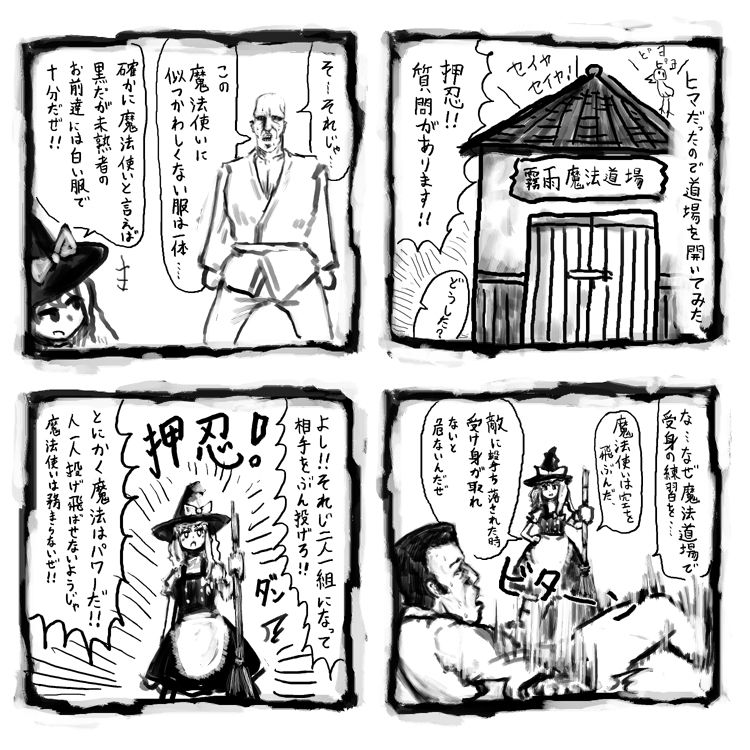 ヒマだったので道場を開いてみた。
ピヨ
ピヨ
セイヤ
セイヤ!
霧雨魔法道場
押忍!!
質問があります!!
どうした?
そ…それじゃ…
この
魔法使いに
似つかわしくない服は一体…
確かに魔法使いと言えば
黒だが未熟者の
お前達には白い服で
十分だぜ!!
な…なぜ魔法道場で
受身の練習を…
魔法使いは空を
飛ぶんだ、
敵に撃ち落された時
受け身が取れ
ないと
危ないんだぜ
ビターン
よし!!それじ二人一組になって
相手をぶん投げろ!!
押忍!
ダンッ
とにかく魔法はパワーだ!!
人一人投げ飛ばせないようじゃ
魔法使いは務まらないぜ!!